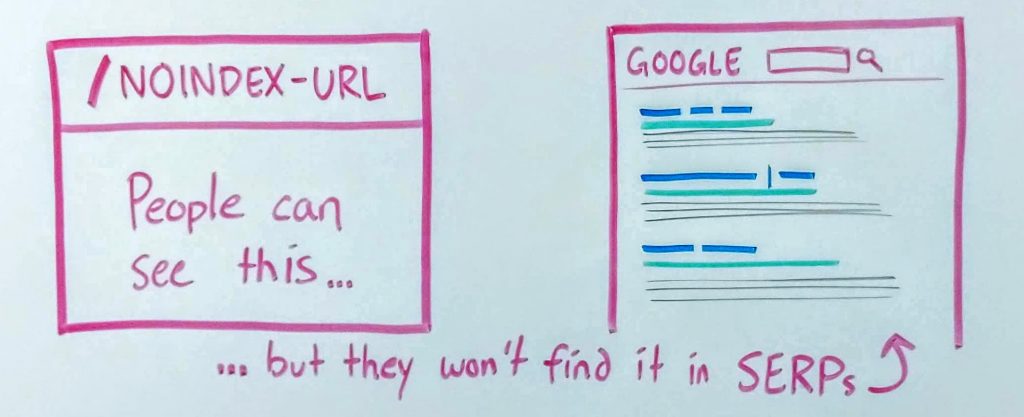 /NOINDEX-URL
People can
see this...
GOOGLE
... but they won't find it in SERPs